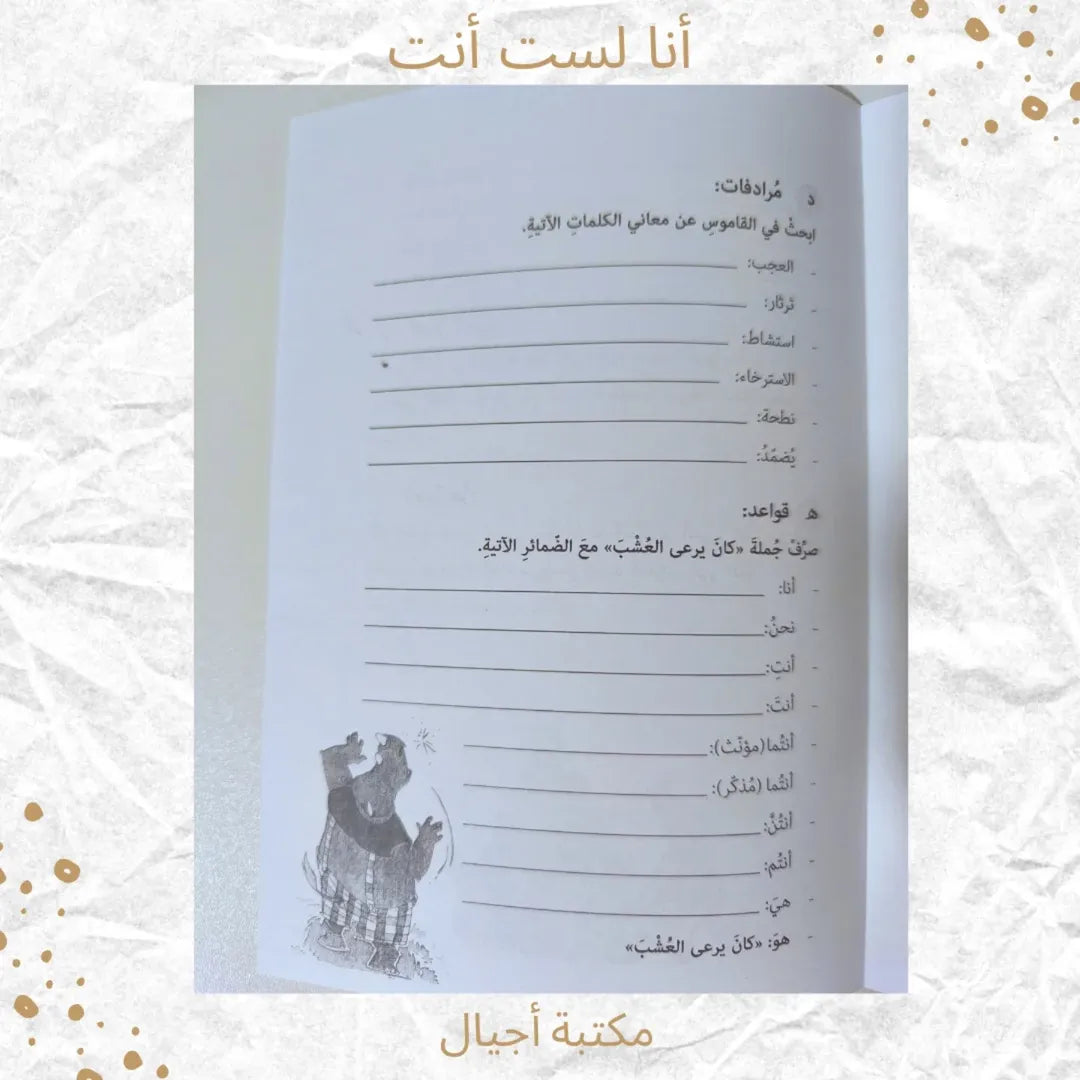 أنا لست أنت
د مُرادفات:
ابحثْ في القاموسِ عن معاني الكلماتِ الآتيةِ.
- العجب:
- ثرثار:
- استشاط:
- الاسترخاء:
- نطحة:
- يُضمّدُ:
ه قواعد:
صرِّفْ جُملةَ «كانَ يرعى العُشْبَ» معَ الضّمائرِ الآتيةِ.
- أنا:
- نحنُ:
- أنتِ:
- أنتَ:
- أنتُما (مؤنّث):
- أنتُما (مُذكّر):
- أنتُنَّ:
- أنتُم:
- هيَ:
- هوَ: «كانَ يرعى العُشْبَ»
مكتبة أجيال